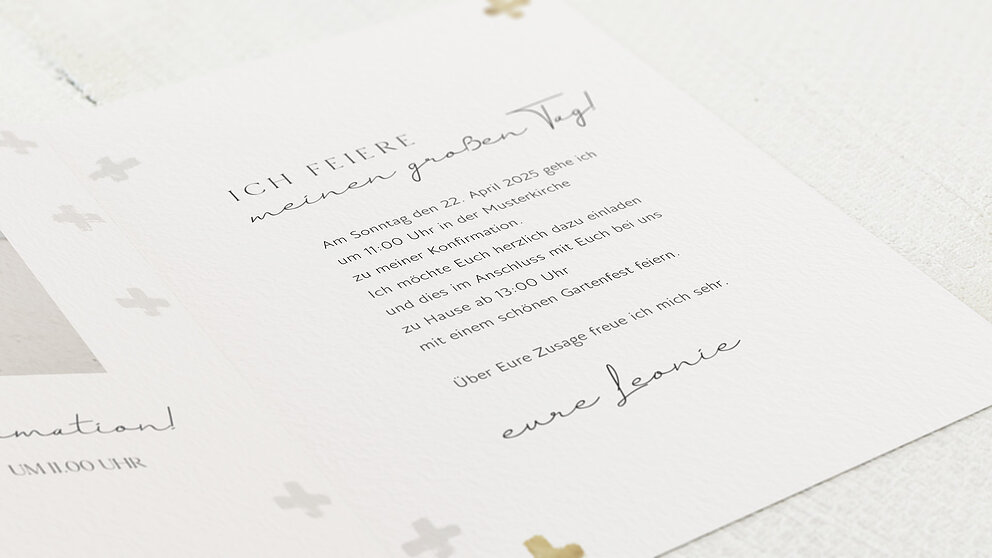 ICH FEIERE
meinen großen Tag!
Am Sonntag den 22. April 2025 gehe ich
um 11:00 Uhr in der Musterkirche
zu meiner Konfirmation.
Ich möchte Euch herzlich dazu einladen
und dies im Anschluss mit Euch bei uns
zu Hause ab 13:00 Uhr
mit einem schönen Gartenfest feiern.
Über Eure Zusage freue ich mich sehr.
eure Leonie
mation!
UM 11.00 UHR